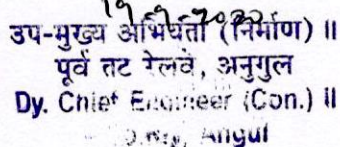 उप-मुख्य अभियंता (निर्माण) II
पूर्व तट रेलवे, अनुगुल
Dy. Chief Engineer (Con.) II
Angul